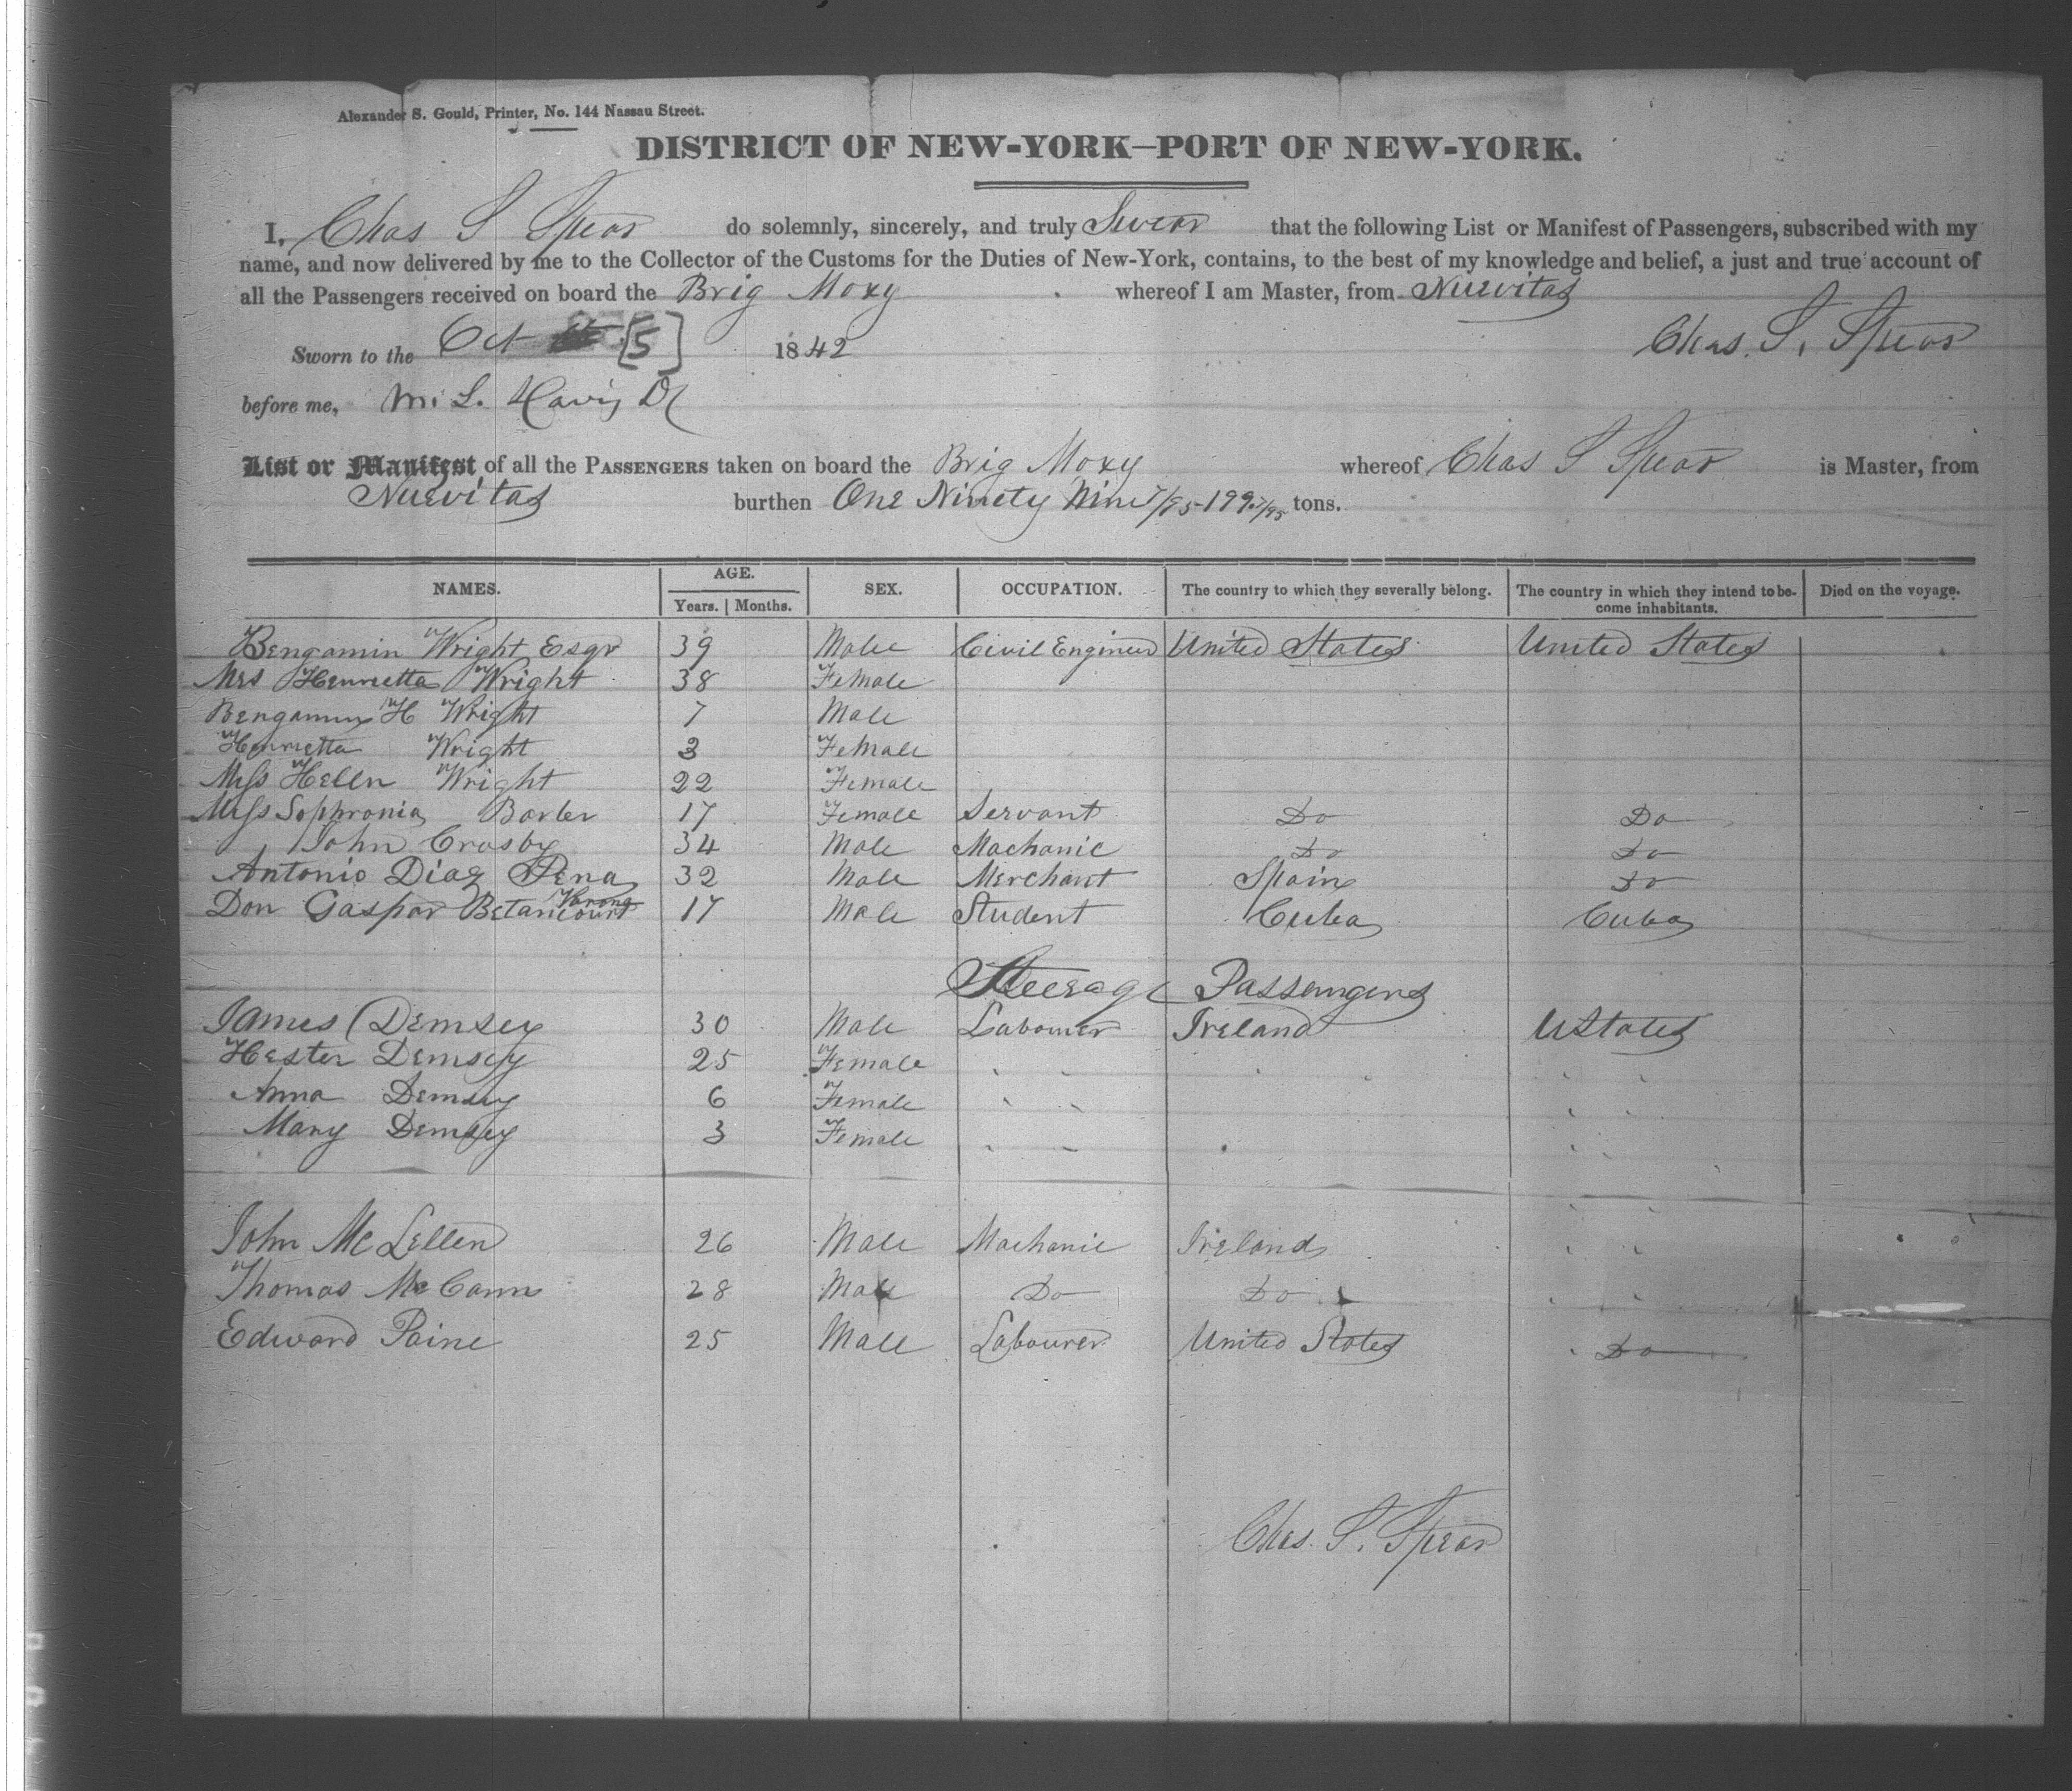 Alexander S. Gould, Printer, No. 144 Nassau Street.
DISTRICT OF NEW-YORK—PORT OF NEW-YORK.
I, Chas S Spear do solemnly, sincerely, and truly Swear that the following List or Manifest of Passengers, subscribed with my
name, and now delivered by me to the Collector of the Customs for the Duties of New-York, contains, to the best of my knowledge and belief, a just and true account of
all the Passengers received on board the Brig Moxy whereof I am Master, from Nuevitas
Sworn to the Oct [5] 1842 Chas. S. Spear
before me, M. L. Davis
List or Manifest, of all the PASSENGERS taken on board the Brig Moxy whereof Chas S Spear is Master, from
Nuevitas burthen One Ninety Nine 7/95 - 199 7/95 tons.
NAMES. AGE. Years. Months. SEX. OCCUPATION. The country to which they severally belong. The country in which they intend to become inhabitants. Died on the voyage.
Bengamin Wright Esqr 39 Male Civil Engineer United States United States
Mrs Henrietta Wright 38 Female
Bengamin H Wright 7 Male
Henrietta Wright 3 Female
Miss Helen Wright 22 Female
Miss Sophronia 17 Female Servant Do Do
John Crosby 34 Male Machanic Do Do
Antonio Diaz Pena 32 Male Merchant Spain Do
Don Gaspar Betancourt 17 Male Student Cuba Cuba
Steerage Passengers
James Demsey 30 Male Labourer Ireland UStates
Hester Demsey 25 Female
Anna Demsey 6 Female
Mary Demsey 3 Female
John McLellen 26 Male Machanic Ireland
Thomas McCann 28 Male Do Do
Edward Paine 25 Male Labourer United States Do
Chas. S. Spear